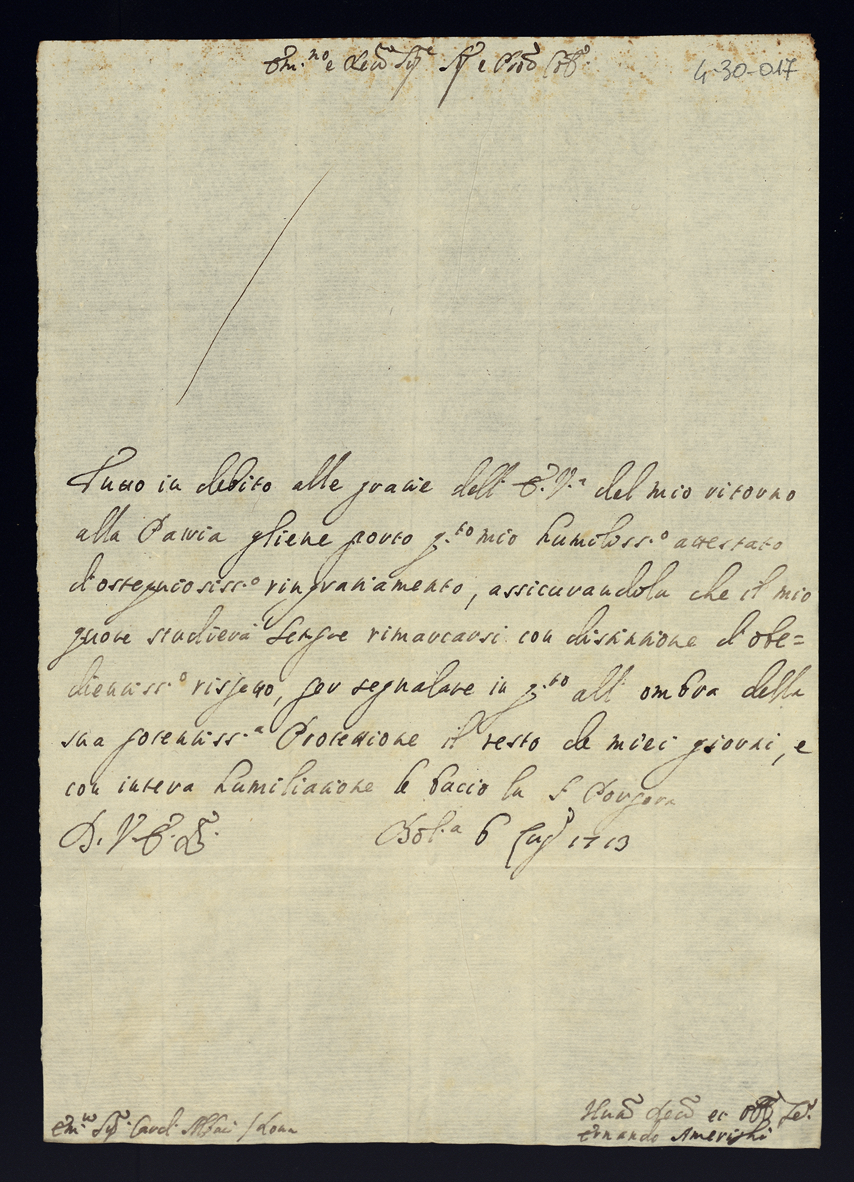 Em.mo e Rev.o Sig.e Sig.e e Pron Col.o
4-30-017
Tutto in debito alle grazie dell' E. V.a del mio ritorno
alla Patria gliene porto q.to mio humiliss.o attestato
d'ossequiosiss.o ringraziamento, assicurandola che il mio
quore studierà sempre rimarcarsi con distinzione d'obe=
dientiss.o rispetto, per segnalare in q.to all' ombra della
sua potentiss.a Protezzione il resto de miei giorni, e
con intera humiliazione le bacio la S. Porpora
D. V. E. R.
Bol.a 6 Lug.o 1713
Em.o Sig. Card. Albani / Roma
Hum.o Dev.o et Obb. Ser.
Ernando Amerighi